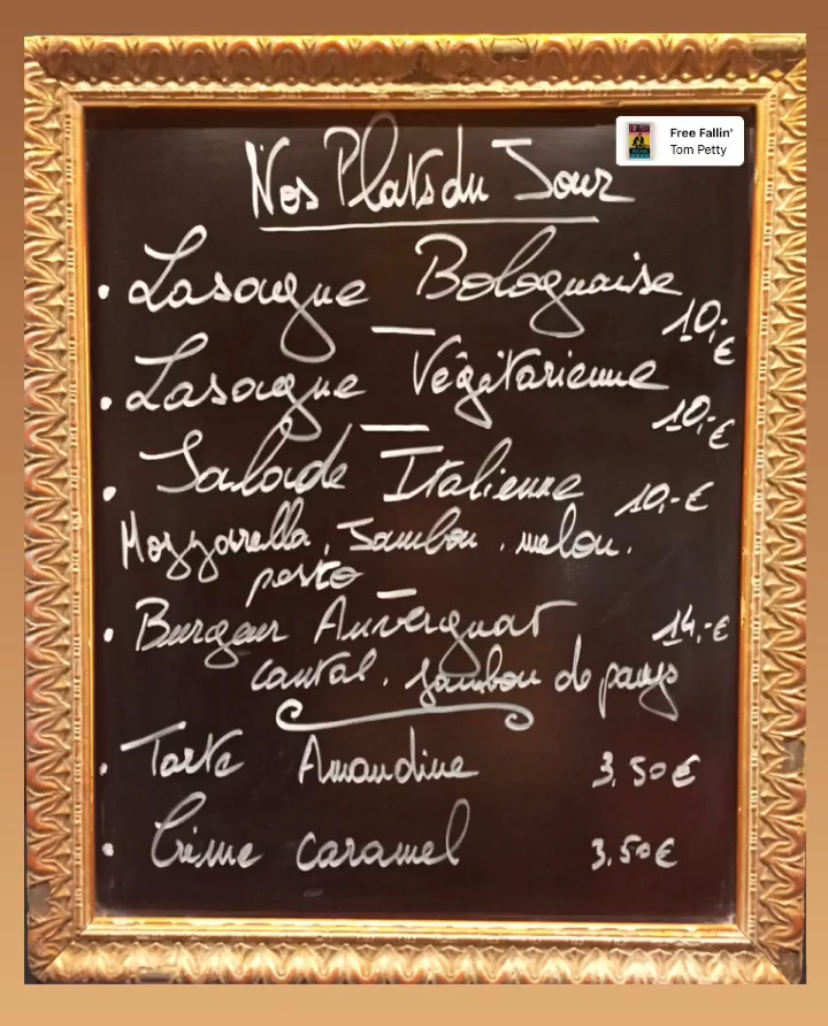 Free Fallin'
Tom Petty
Nos Plats du Jour
• Lasagne Bolognaise
10,-€
• Lasagne Végétarienne
10,-€
• Salade Italienne 10,-€
Mozzarella, Jambon, melon,
pesto
• Burgeur Auvergnat 14,-€
cantal, jambon de pays
• Tarte Amandine 3,50€
• Crème caramel 3,50€